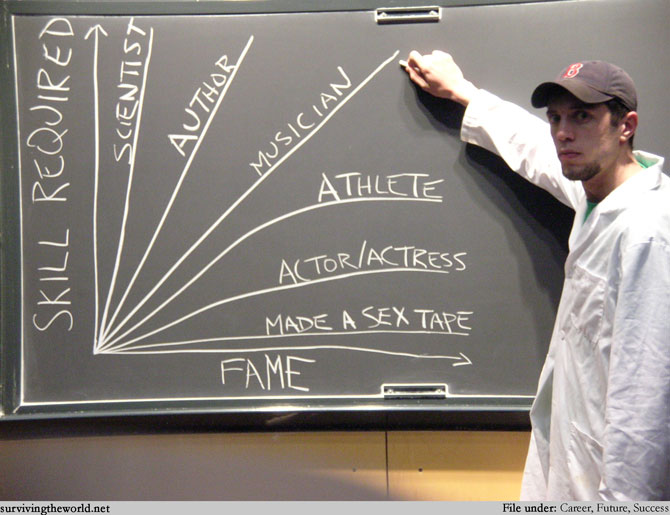 SKILL REQUIRED
SCIENTIST
AUTHOR
MUSICIAN
ATHLETE
ACTOR/ACTRESS
MADE A SEX TAPE
FAME
B
survivingtheworld.net
File under: Career, Future, Success